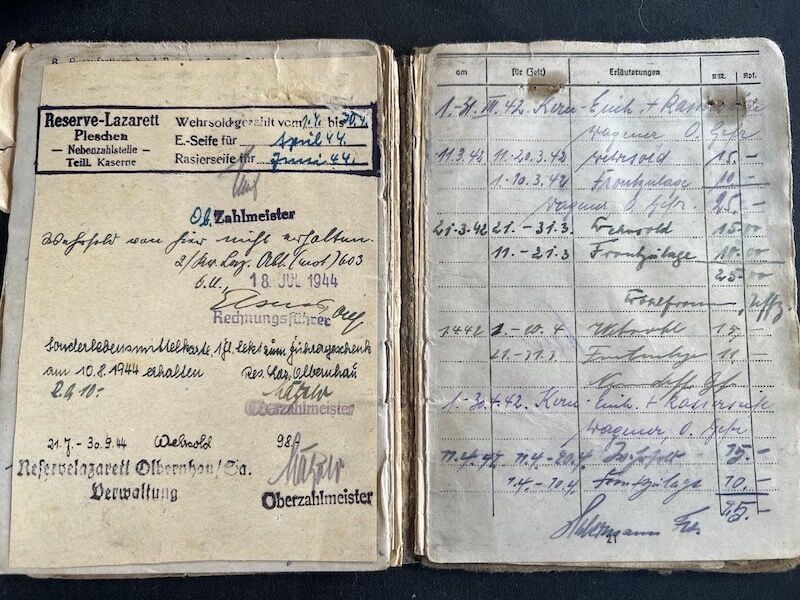 Reserve-Lazarett
Pleschen
– Nebenzahlstelle –
Teill. Kaserne
Wehrsold gezahlt vom 1.4. bis 30.4.
E.-Seife für April 44.
Rasierseife für Juni 44.
Ob. Zahlmeister
Wehrsold von hier nicht erhalten.
O.U., 18. JUL 1944
Rechnungsführer
Sonderlebensmittelkarte, 1 Fl. Sekt zum Führergeschenk
am 10.8.1944 erhalten Res. Laz. Olbernhau
Oberzahlmeister
21.7. – 30.9.44 Wehrsold
Reservelazarett Olbernhau/Sa.
Verwaltung
Oberzahlmeister
am (für Zeit) Erläuterungen RM. Rpf.
1.-31. III. 42 Kern- Einh. + Rasierseife
Wagner O. Gefr
11.3.42 11.-20.3.42 Wehrsold 15 –
1.-10.3.42 Frontzulage 10 –
Wagner O. Gefr. 25.–
21.3.42 21.-31.3. Wehrsold 15 00
11.-21.3 Frontzulage 10 00
25 00
Uffz
1.4.42 1.-10.4 Wehrsold 15,-
21.-31.3 Frontzulage 11 –
1.-30.4.42 Kern- Einh. + Rasierseife
Wagner, O. Gefr
11.4.42 11.4.-20.4. Wehrsold 15.–
1.4.-10.4. Frontzulage 10.–
25.–
21